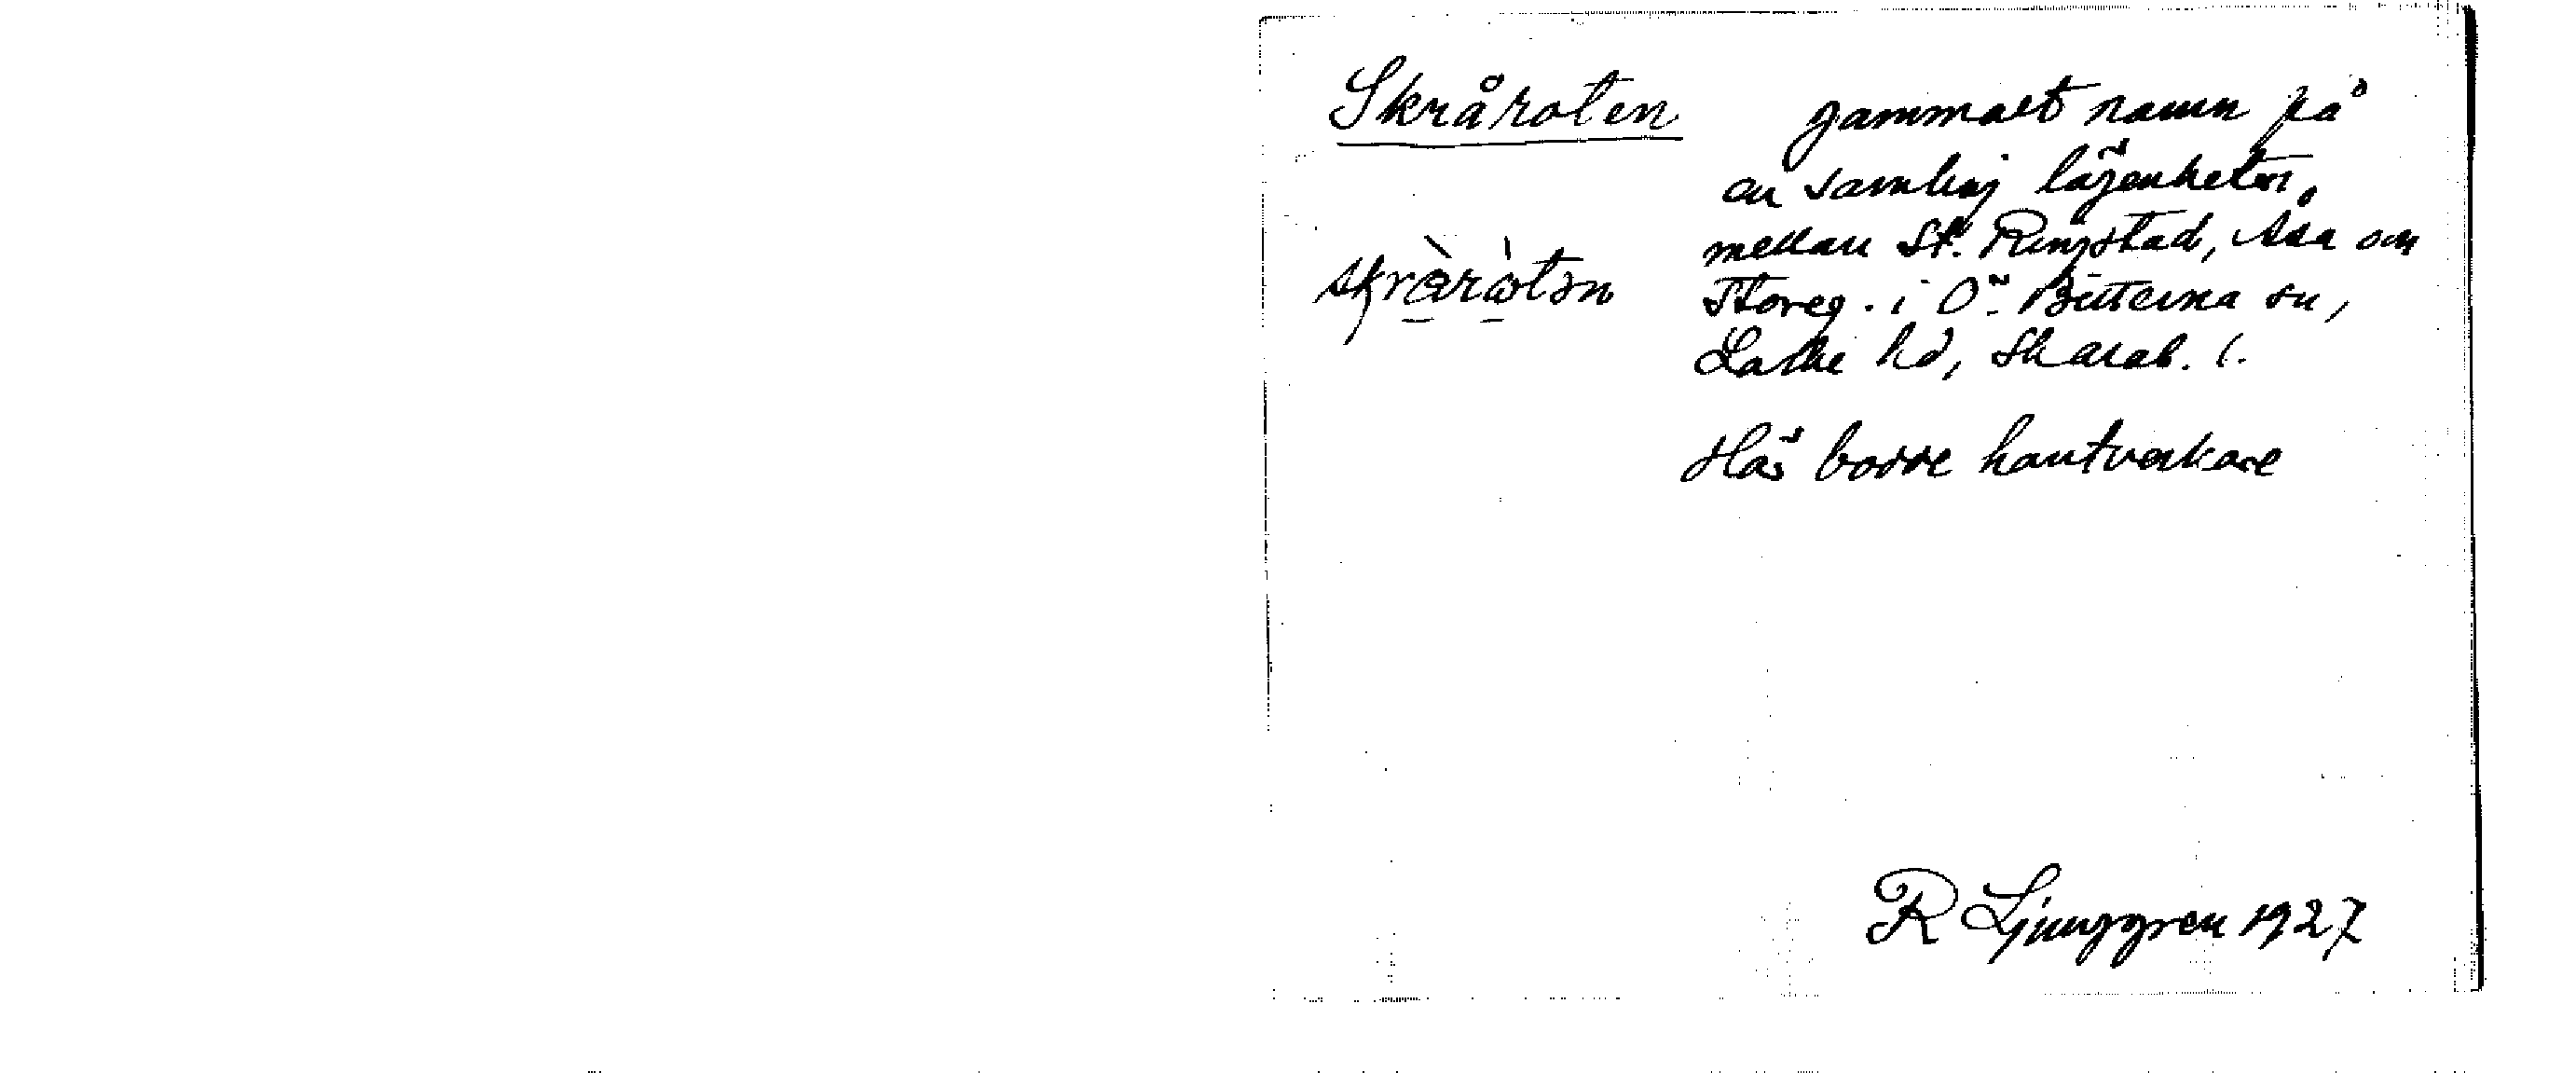 Skråroten gammalt namn på
en samling lägenheter
mellan St. Ringstad, Åsa och
Storeg. i Ö. Bitterna sn,
Laske hd, Skarab. l.
skrå̀rò̀tən
Här bodde hantverkare
R Ljunggren 1927